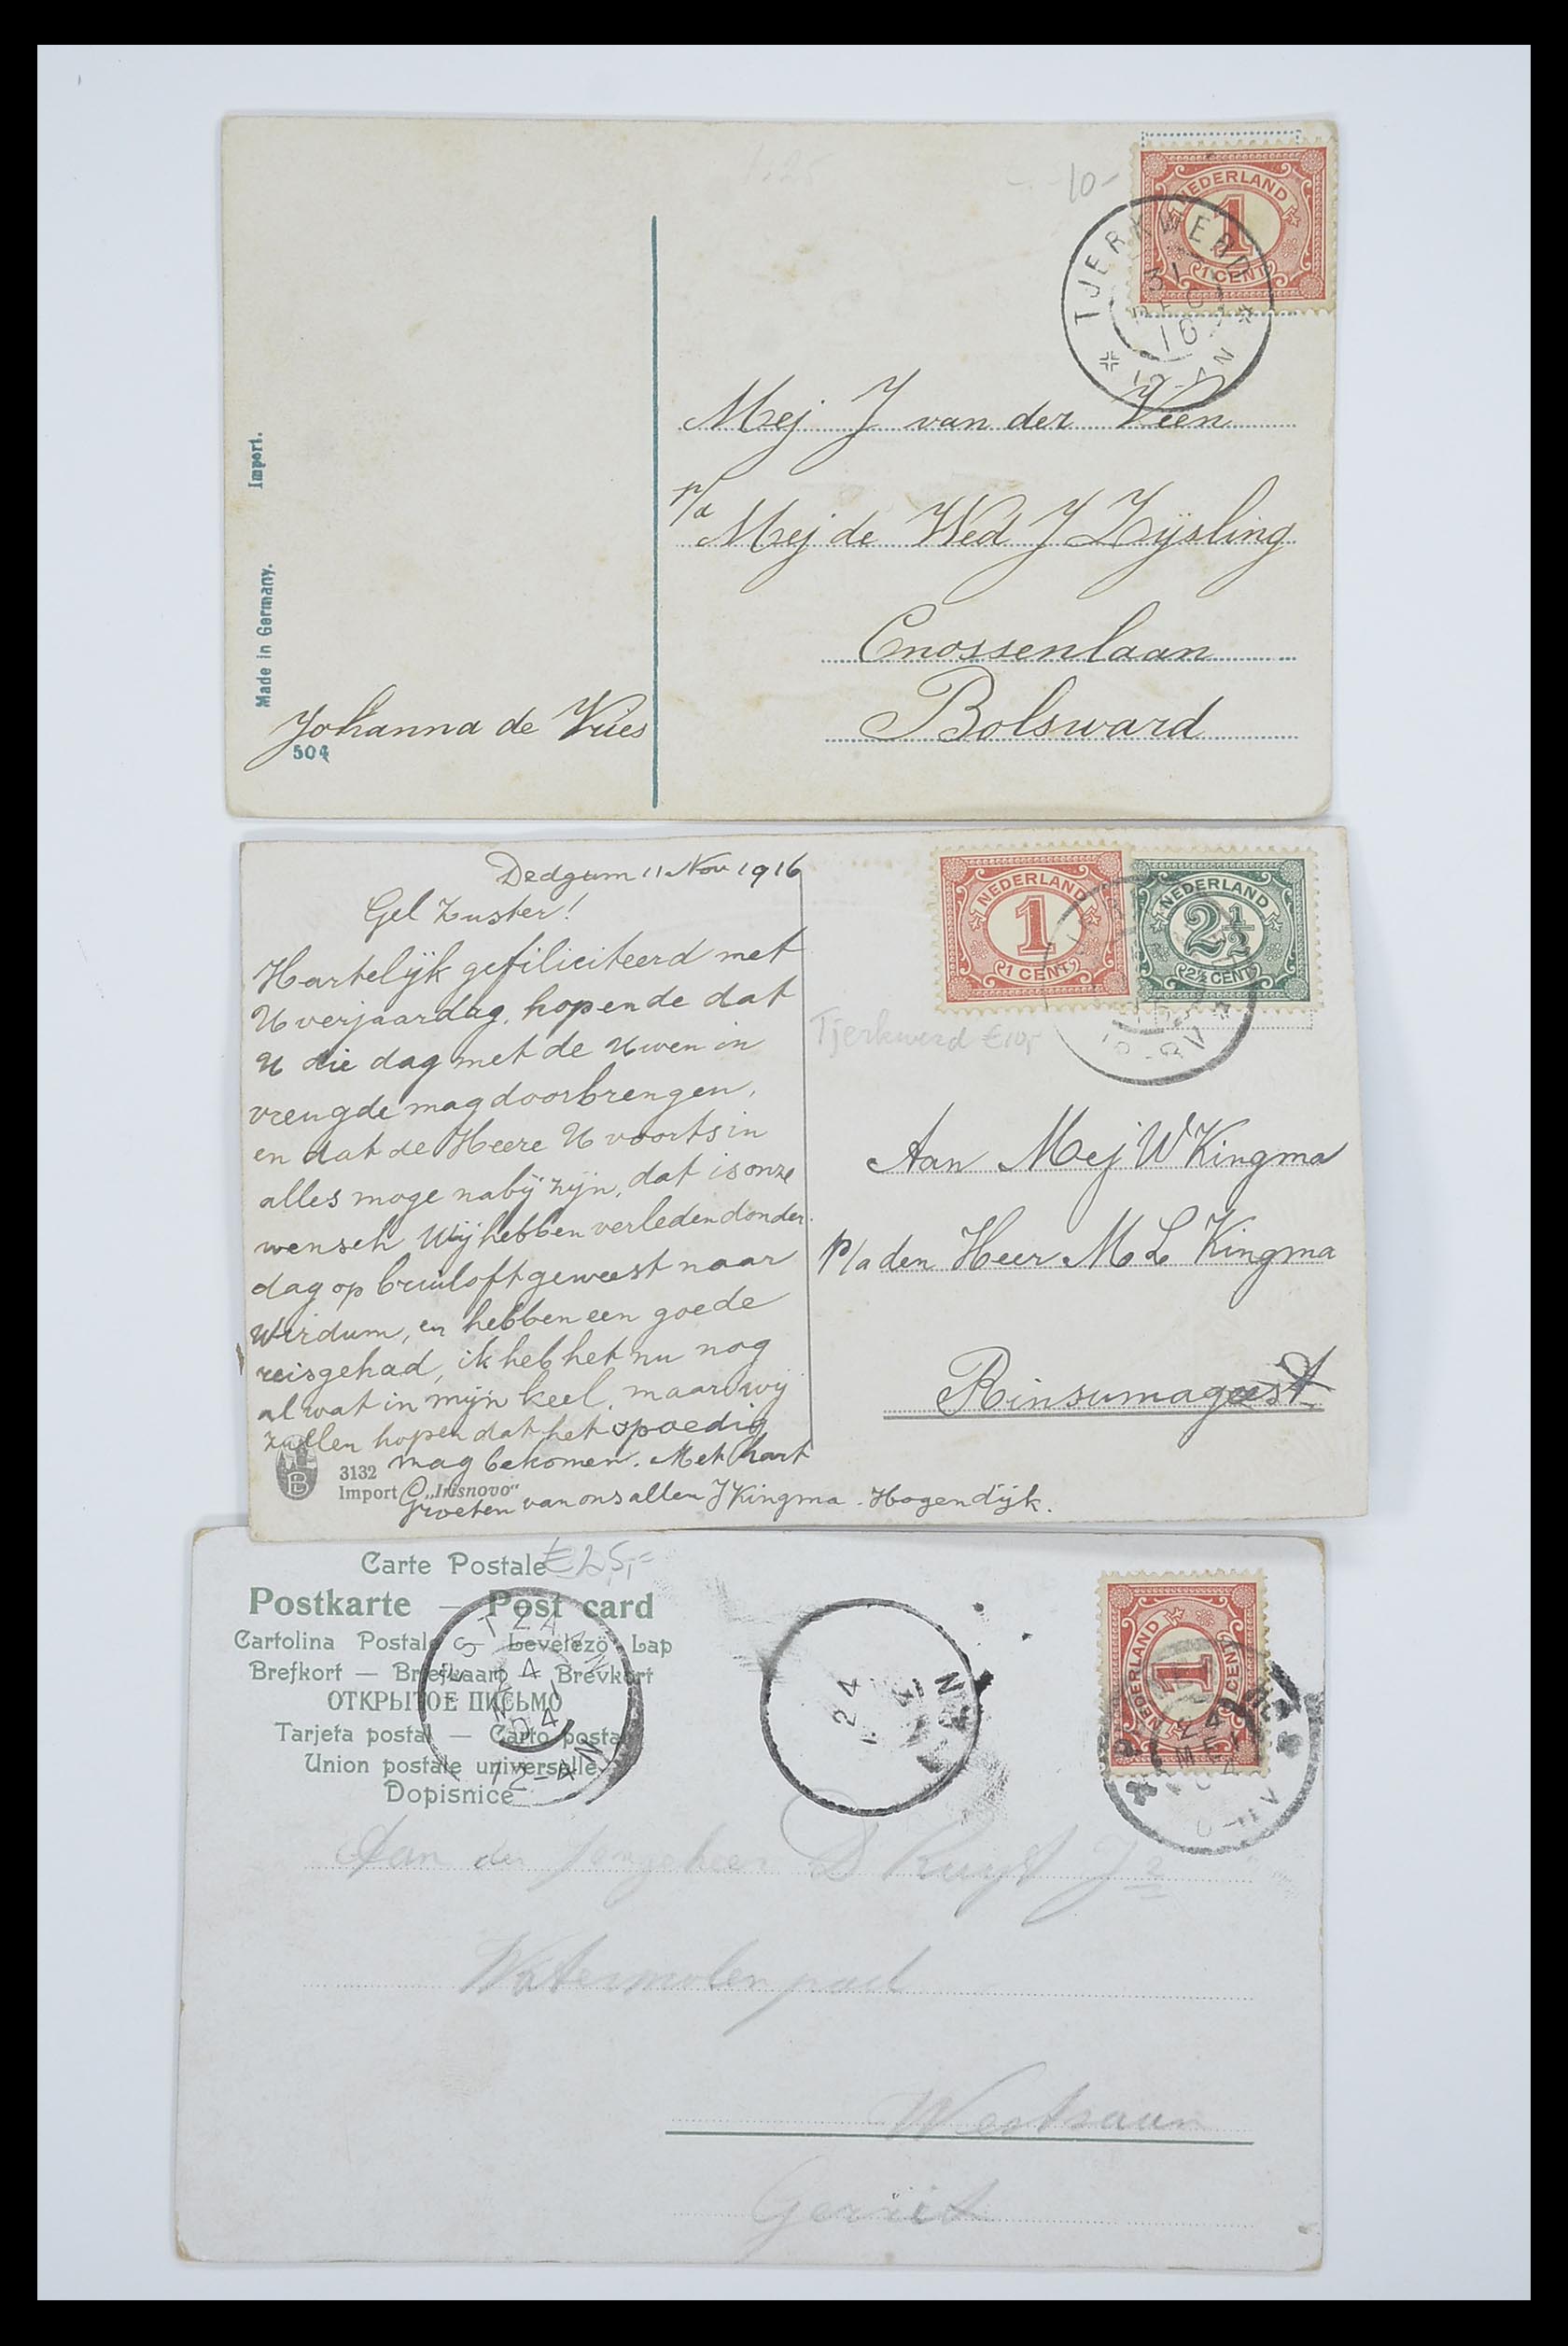 10-
NEDERLAND
1
1 CENT
TJERKWERD
31
DEC
16
Mej J van der Veen
p/a Mej de Wed J Zijsling
Cnossenlaan
Bolsward
Import.
Made in Germany.
Johanna de Vries
504
Dedgum 11 Nov 1916
Gel Zuster!
Hartelijk gefiliciteerd met
U verjaardag, hopende dat
U die dag met de Uwen in
vreugde mag doorbrengen,
en dat de Heere U voorts in
alles moge nabij zijn, dat is onze
wensch Wij hebben verleden donder-
dag op bruiloft geweest naar
Wirdum, en hebben een goede
reis gehad, ik heb het nu nog
al wat in mijn keel, maar wij
zullen hopen dat het spoedig
mag bekomen. Met hart
Groeten van ons allen J Kingma-Hogendijk.
3132
Import „Irisnovo"
NEDERLAND
1
1 CENT
NEDERLAND
2½
2½ CENT
Tjerkwerd €10,-
Aan Mej W Kingma
p/a den Heer M L Kingma
Rinsumageest
Carte Postale €25,=
Postkarte — Post card
Cartolina Postale — Levelezö Lap
Brefkort — Briefkaart — Brevkort
ОТКРЫТОЕ ПИСЬМО
Tarjeta postal — Carto postal
Union postale universelle
Dopisnice
4
04
12-4N
24
NEDERLAND
1
1 CENT
24
MEI
04
Aan den Jongeheer D Ruyst Jr
Watermolenpad
Westzaan
Gerrit